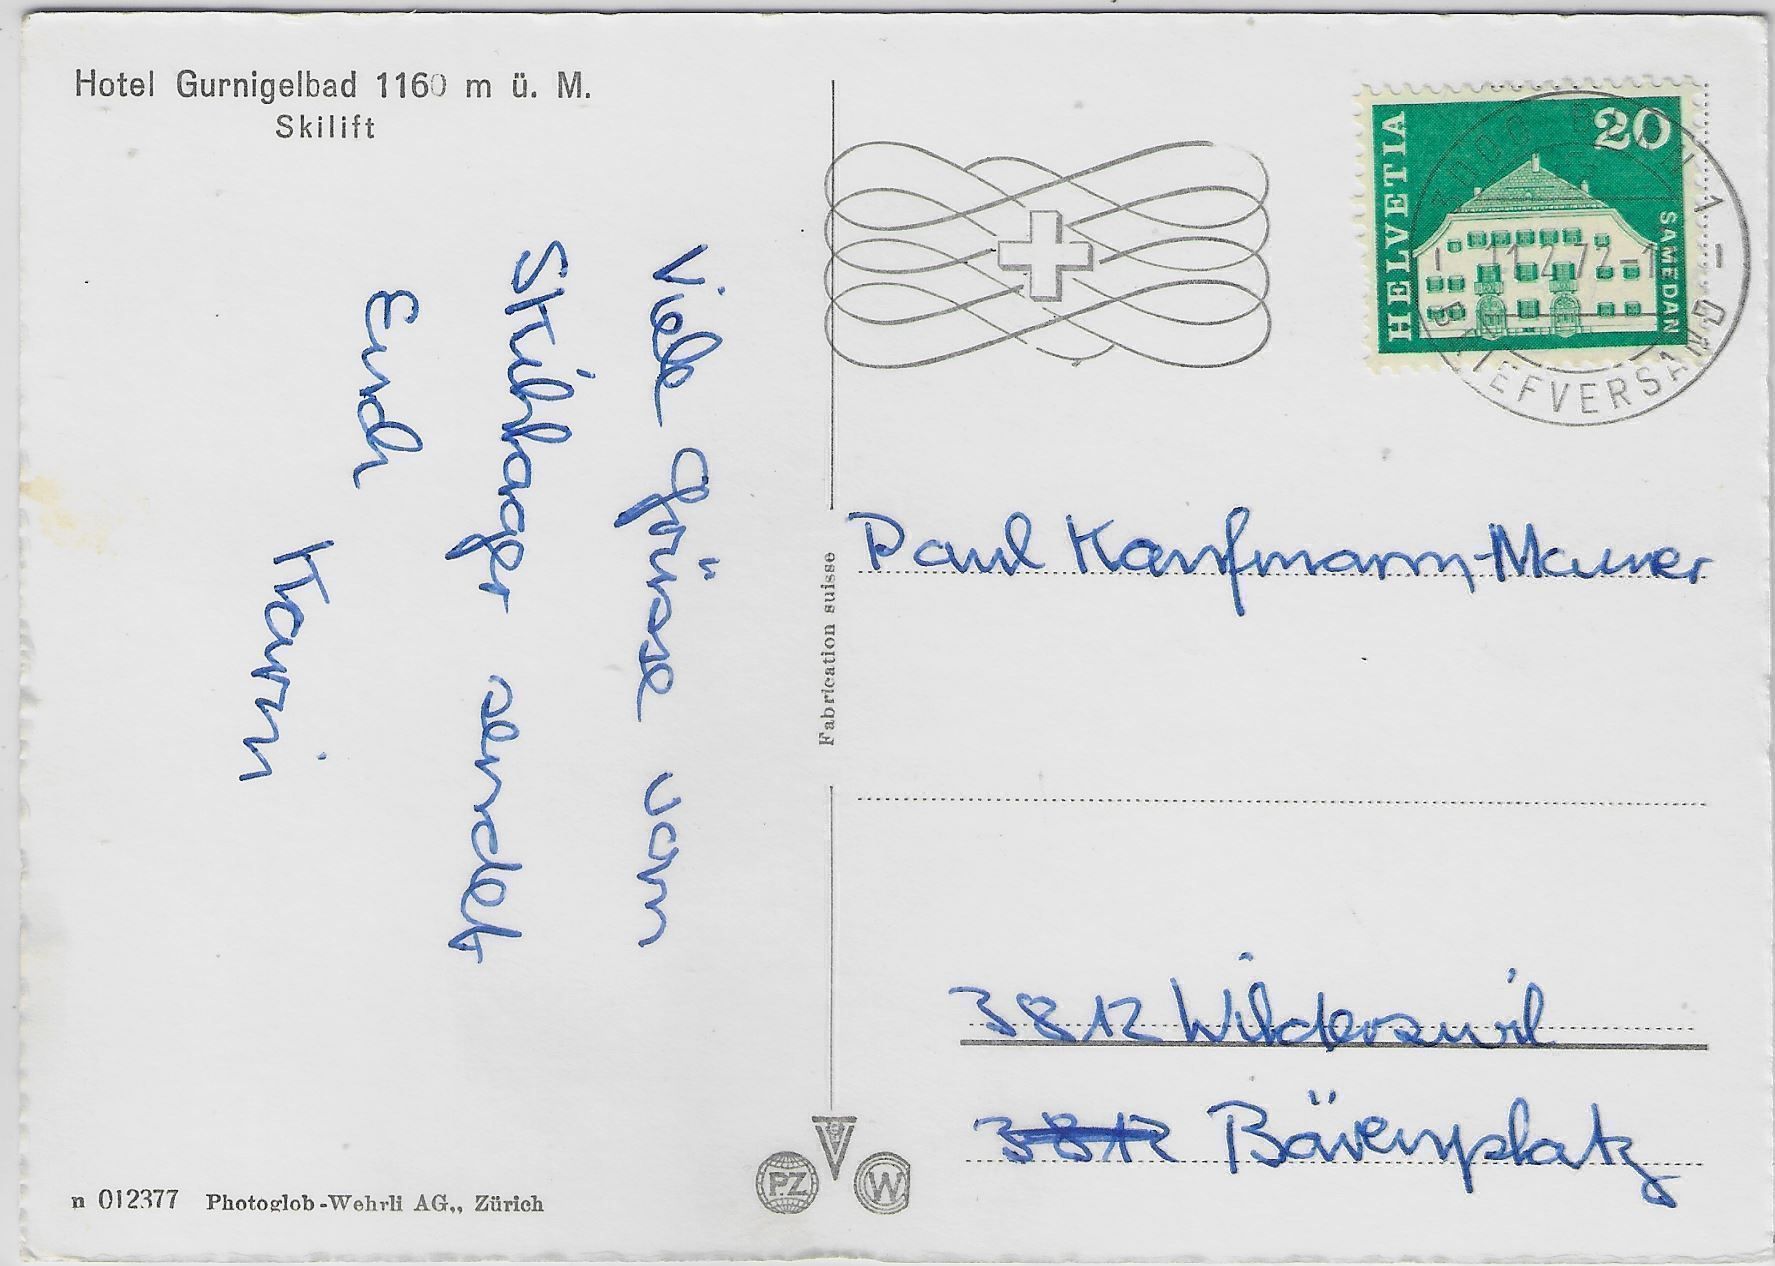 Hotel Gurnigelbad 1160 m ü. M.
Skilift
Viele Grüsse vom
Skilager sendet
Euch
Karin
n 012377 Photoglob-Wehrli AG., Zürich
Fabrication suisse
PZ
W
HELVETIA
20
SAMEDAN
3000 BERN 1
11.2.72-1
BRIEFVERSAND
Paul Kaufmann-Maurer
3812 Wilderswil
3812 Bärenplatz